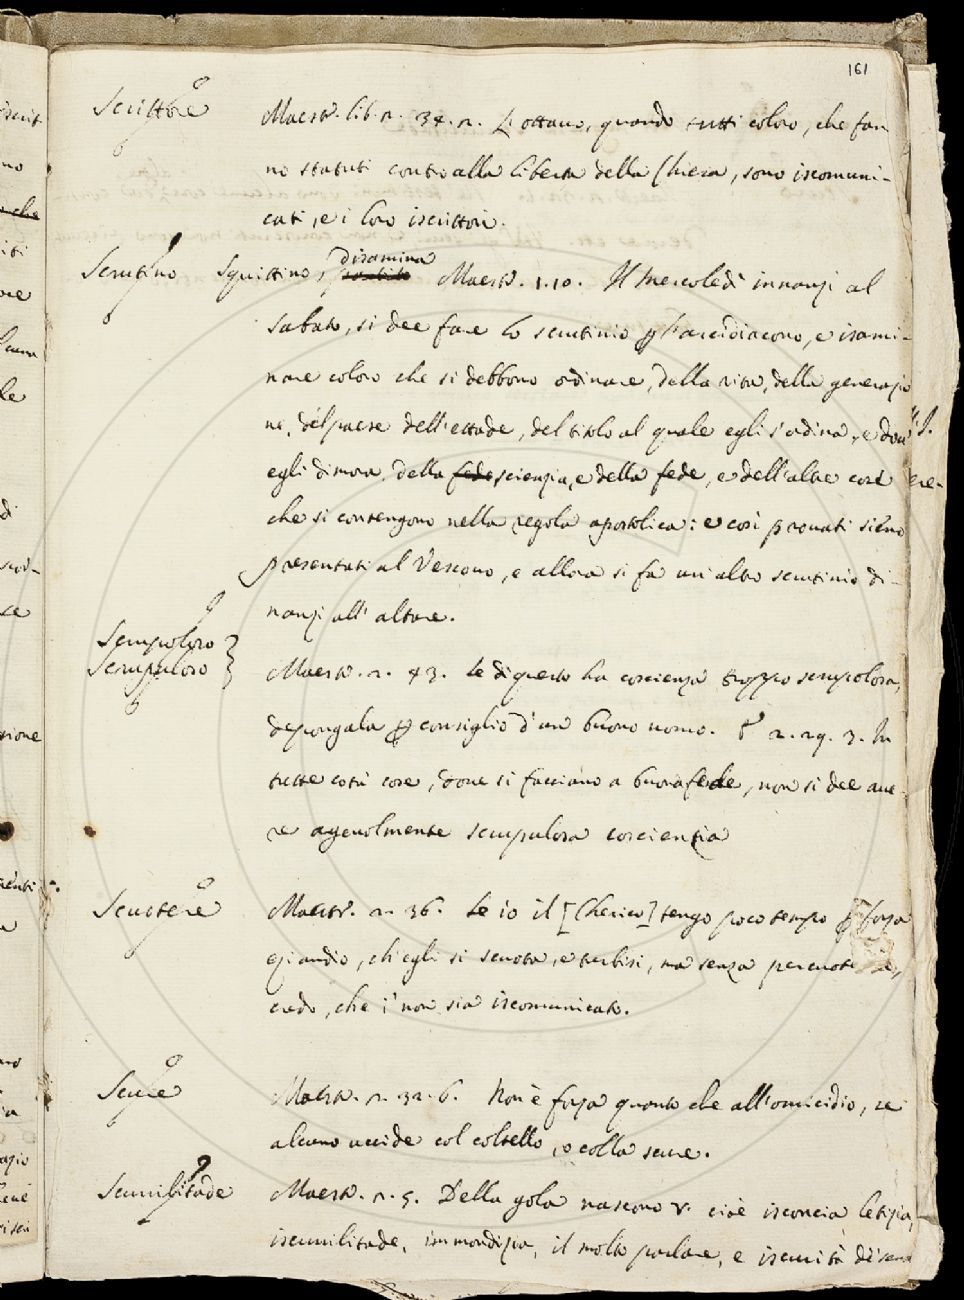 161
Scrittore Maestr. lib. 2. 34. 2. L'ottavo, quando tutti coloro, che fan-
no statuti contro alla libertà della Chiesa, sono iscomuni-
cati, e i loro iscrittori.
disamina
Scrutino Squittino, Maestr. 1. 10. Il Mercoledì innanzi al
Sabato, si dee fare lo scrutinio p l'arcidiacono, e isami-
nare coloro che si debbono ordinare, della vita, della generazio
ne, del paese dell'ettade, del titolo al quale egli s'ordina, e dove
egli dimora, della fede scienzia, e della fede, e dell'altre cose
che si contengono nella regola apostolica: e così provati sieno
presentati al Vescovo, e allora si fa un'altro scrutinio di-
nanzi all'altare.
Scrupoloso
Scrupuloso Maestr. 2. 43. Se di questo ha coscienza troppo scrupolosa,
depongala p consiglio d'un buono uomo. E 2. 29. 3. In
tutte cotà cose, dove si facciano a buona fede, non si dee ave-
re agevolmente scrupulosa coscienzia
Scuotere Maestr. 2. 36. Se io il [Cherico] tengo poco tempo p forza
eziandio, ch'egli si scuota, e turbisi, ma senza percuotere,
credo, che i' non sia iscomunicato.
Scure Maestr. 2. 32. 6. Non è forza quanto che all'omicidio, se
alcuno uccide col coltello, o colla scure.
Scurrilitade Maestr. 2. 5. Della gola nascono V. cioè isconcia letizia,
iscurrilitade, immondizia, il molto parlare, e iscurità di